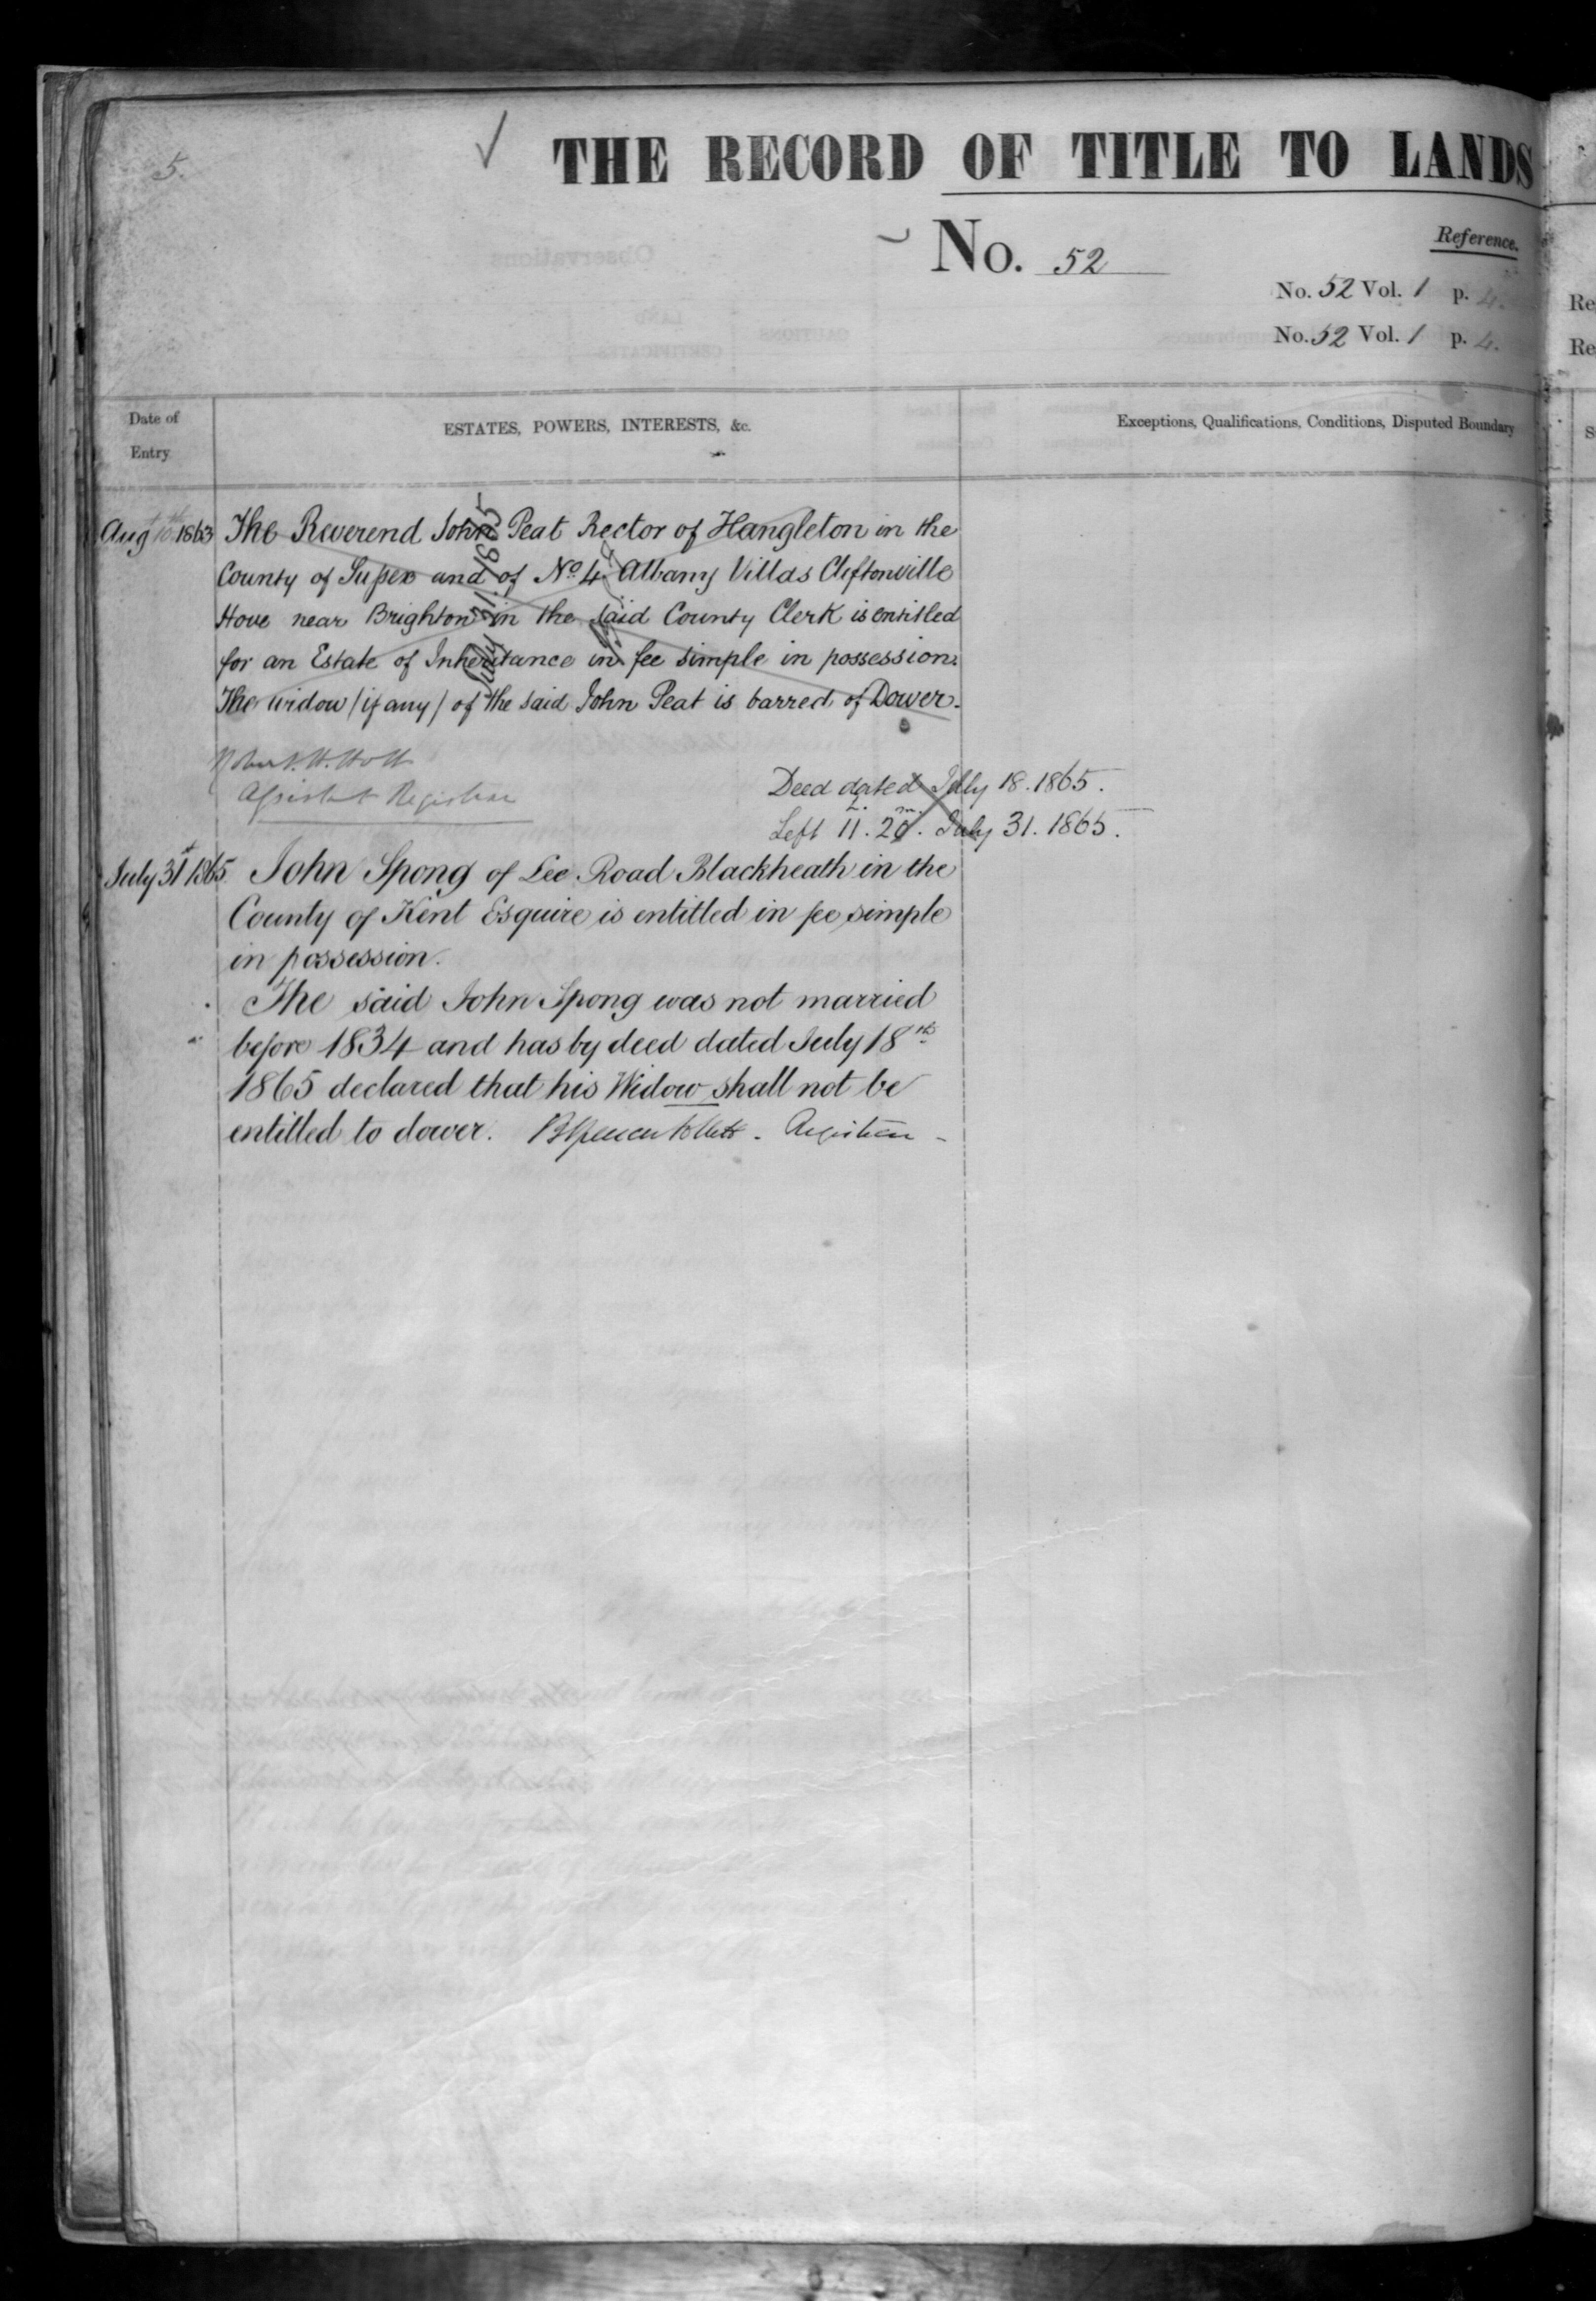 5.
THE RECORD OF TITLE TO LANDS
No. 52
Reference.
No. 52 Vol. 1 p. 4.
No. 52 Vol. 1 p. 4.
Re
Re
Date of
Entry
ESTATES, POWERS, INTERESTS, &c.
Exceptions, Qualifications, Conditions, Disputed Boundary
S
Aug 1863 The Reverend John Peat Rector of Hangleton in the
County of Sussex and of No. 4 Albany Villas Cliftonville
Hove near Brighton in the said County Clerk is entitled
for an Estate of Inheritance in fee simple in possession.
The widow (if any) of the said John Peat is barred of Dower.
July 31. 1865
Assistant Registrar
Deed dated July 18. 1865.
Left 11. 20. July 31. 1865.
July 31st 1865. John Spong of Lee Road Blackheath in the
County of Kent Esquire is entitled in fee simple
in possession.
The said John Spong was not married
before 1834 and has by deed dated July 18th
1865 declared that his Widow shall not be
entitled to dower. Registrar